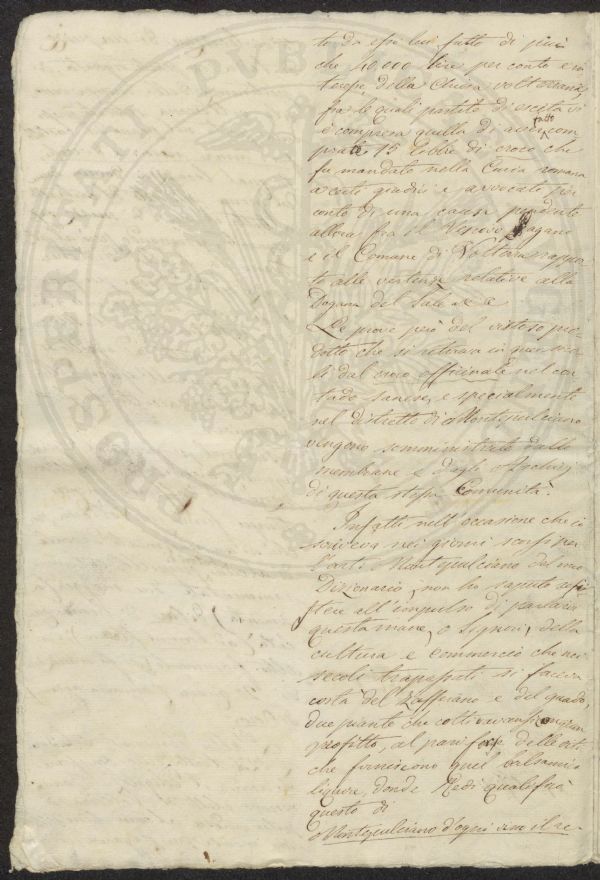 to da essi lui fatto di più
che 40000 lire per conto e in
teresse della Chiesa volterrana,
fra le quali partite di escita vi
è compresa quella di aver fatto com
prate 15 libbre di croco che
fu mandato nella Curia romana
a certi giudici e avvocati per
conto di una causa pendente
allora fra il Vescovo Pagano
e il Comune di Volterra rappor
to alle vertenze relative alla
Dogana del Sale &c e
Le prove però del vistoso pro=
dotto che si ritirava in quei seco
li dal croco officinale nel con
tado sanese, e specialmente
nel distretto di Montepulciano
vengono somministrate dalle
membrane e dagli Archivj
di questa stessa Comunità.
Infatti nell'occasione che io
scriveva nei giorni scorsi per
l'art. Montepulciano del mio
Dizionario, non ho saputo resi
stere all'impulso di parlarvi
questa mane, o Signori, della
cultura e commercio che nei
secoli trapassati si faceva
costà del Zafferano e del guado,
due piante che coltivavansi con gran
profitto, al pari forse delle viti
che forniscono quel balsamico
liquore, donde Redi qualificò
questo di
Montepulciano d'ogni vino il re
PROSPERITATI PVBLICAE